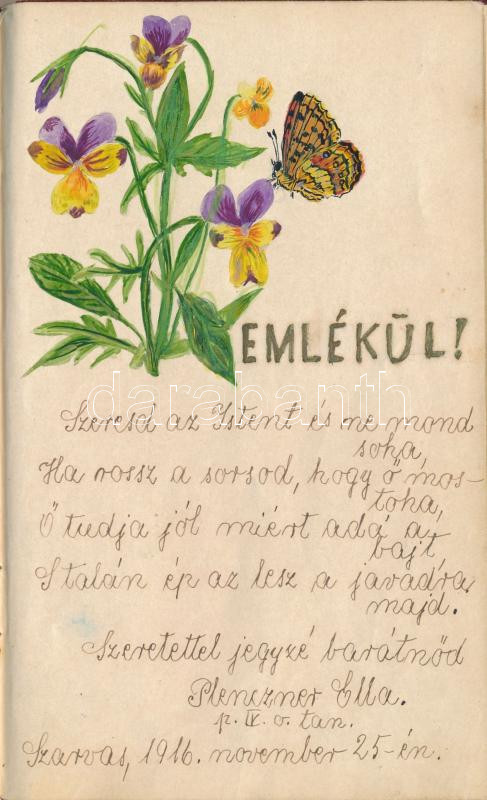 EMLÉKŰL!
Szeresd az Istent és ne mond
soha,
Ha rossz a sorsod, hogy ő mos-
toha,
Ő tudja jól miért adá a
bajt,
S talán ép az lesz a javadra
majd.
Szeretettel jegyzé barátnőd
Plenczner Ella.
p. IV. o. tan.
Szarvas, 1916. november 25-én.
darabanth